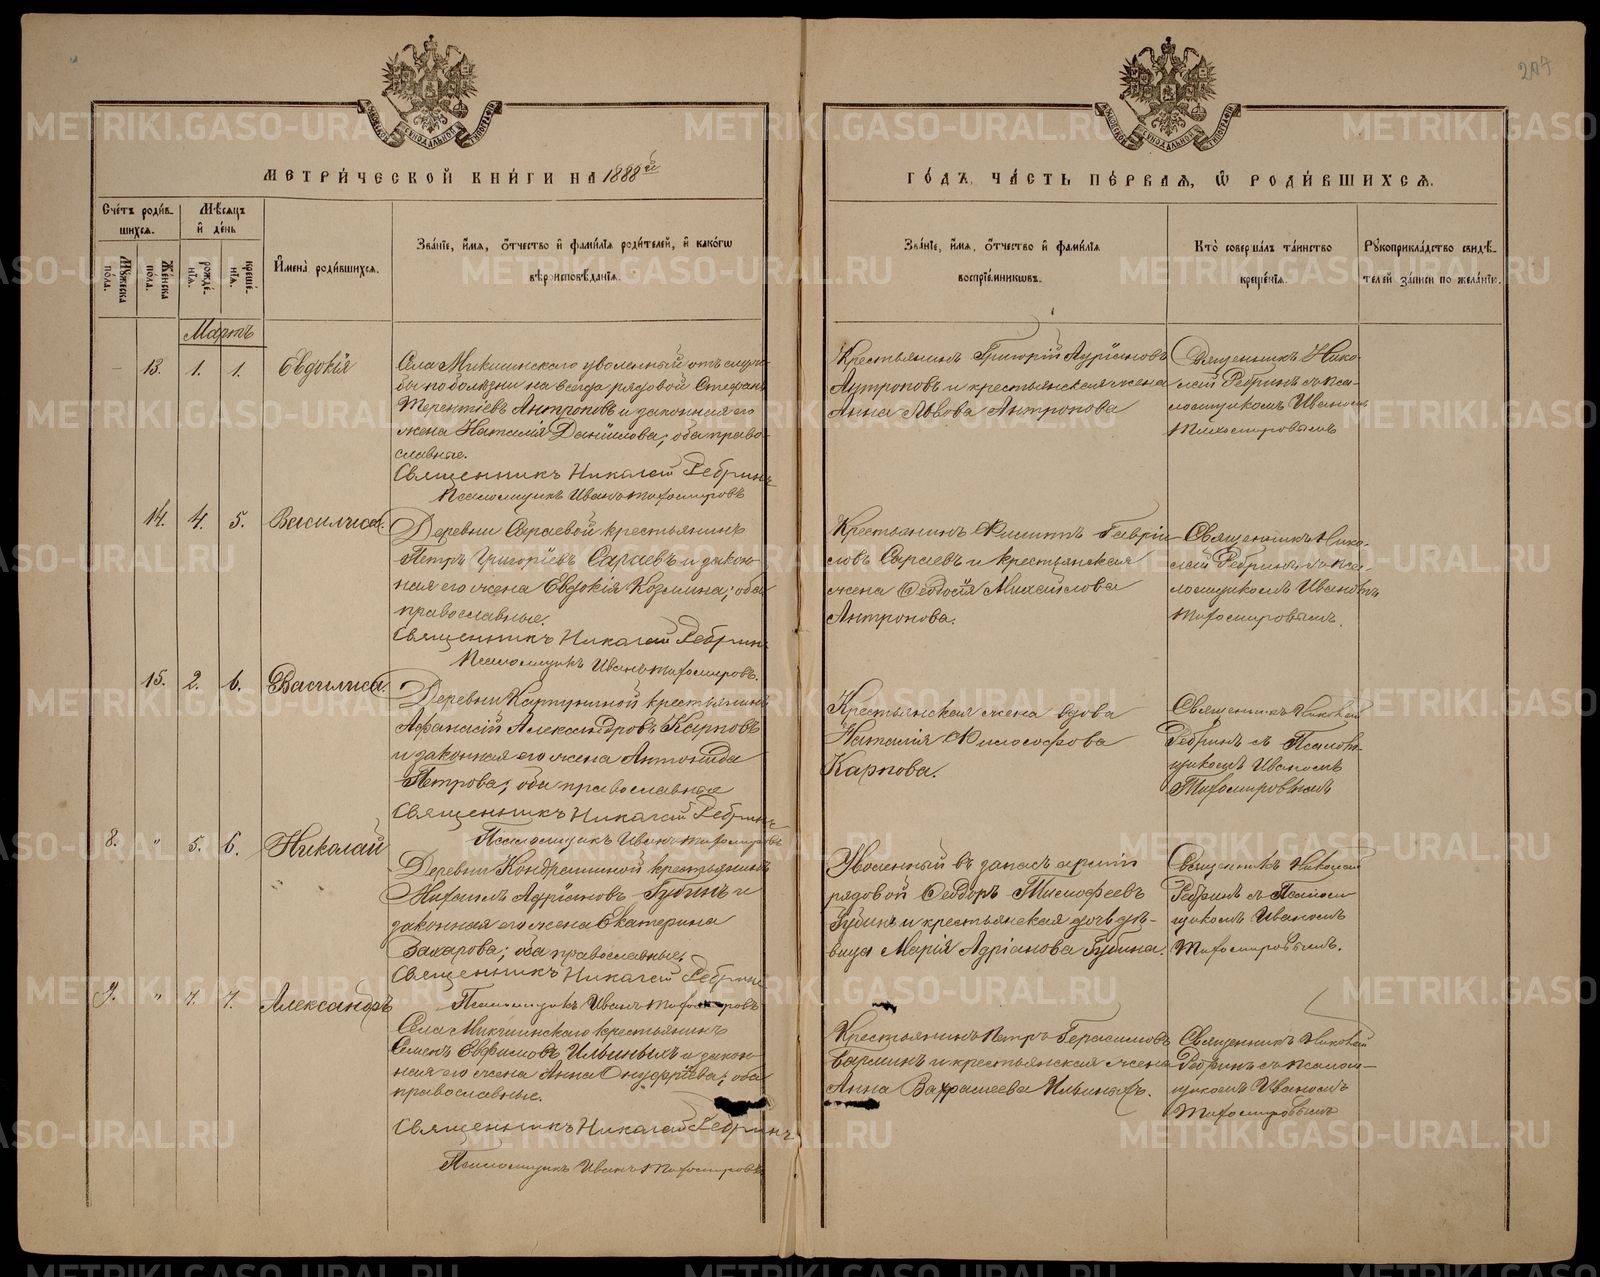 207
МЕТРИ́ЧЕСКОЙ КНИ́ГИ НА 1888й
ГО́ДЪ, ЧА́СТЬ ПЕ́РВАЯ, Ѽ РОДИ́ВШИХСЯ.
Сче́тъ роди́в-
шихся.
Му́жеска по́ла.
Же́нска по́ла.
Мѣ́сяцъ
и҆ де́нь
рожде́-
нїѧ.
креще́-
нїѧ.
И҆мена̀ роди́вшихся.
Зва́нїе, и҆́мѧ, ѻ҆́тчество и҆ фами́лїѧ роди́телей, и҆ како́гѡ
вѣроисповѣ́данїѧ.
Зва́нїе, и҆́мѧ, ѻ҆́тчество и҆ фами́лїѧ
воспрїе́мникѡвъ.
Кто̀ соверша́лъ та́инство
креще́нїѧ.
Рꙋкоприкла́дство свидѣ́-
телей за́писи по жела́нїю.
Мартъ
13. 1. 1. Евдокія
Села Микшинскаго уволенный отъ служ-
бы по болѣзни на всегда рядовой Стефанъ
Терентіевъ Антроповъ и законная его
жена Наталія Даніилова; оба право-
славные.
Священникъ Николай Ребринъ
Псаломщикъ Иванъ Тихомировъ
Крестьянинъ Григорій Адріановъ
Антроповъ и крестьянская жена
Анна Львова Антропова
Священникъ Нико-
лай Ребринъ съ пса-
ломщикомъ Иваномъ
Тихомировымъ
14. 4. 5. Василиса.
Деревни Сараевой крестьянинъ
Петръ Григоріевъ Сараевъ и закон-
ная его жена Евдокія Козмина; оба
православные.
Священникъ Николай Ребринъ
Псаломщикъ Иванъ Тихомировъ.
Крестьянинъ Филиппъ Гавріи-
ловъ Сараевъ и крестьянская
жена Ѳеодосія Михайлова
Антропова.
Священникъ Нико-
лай Ребринъ съ пса-
ломщикомъ Иваномъ
Тихомировымъ.
15. 2. 6. Василиса.
Деревни крестьянинъ
Аѳанасій Александровъ Карповъ
и законная его жена Антонида
Петрова; оба православные
Священникъ Николай Ребринъ
Псаломщикъ Иванъ Тихомировъ
Крестьянская жена вдова
Наталія Философова
Карпова.
Священникъ Николай
Ребринъ съ Псалом-
щикомъ Иваномъ
Тихомировымъ
8. " 5. 6. Николай
Деревни Кондрашиной крестьянинъ
Адріановъ Губинъ и
законная его жена Екатерина
Захарова; оба православные.
Священникъ Николай Ребринъ
Псаломщикъ Иванъ Тихомировъ
Уволенный въ запасъ арміи
рядовой Ѳеодоръ Тимофеевъ
Губинъ и крестьянская дочь дѣ-
вица Марія Адріанова Губина.
Священникъ Николай
Ребринъ съ Псалом-
щикомъ Иваномъ
Тихомировымъ.
9. " 7. 7. Александръ
Села Микшинскаго крестьянинъ
Семенъ Евфимовъ Ильиныхъ и закон-
ная его жена Анна Онуфріева; оба
православные.
Священникъ Николай Ребринъ
Псаломщикъ Иванъ Тихомировъ
Крестьянинъ Петръ Герасимовъ
и крестьянская жена
Анна Варфамеева Ильиныхъ.
Священникъ Николай
Ребринъ съ псалом-
щикомъ Иваномъ
Тихомировымъ
METRIKI.GASO-URAL.RU